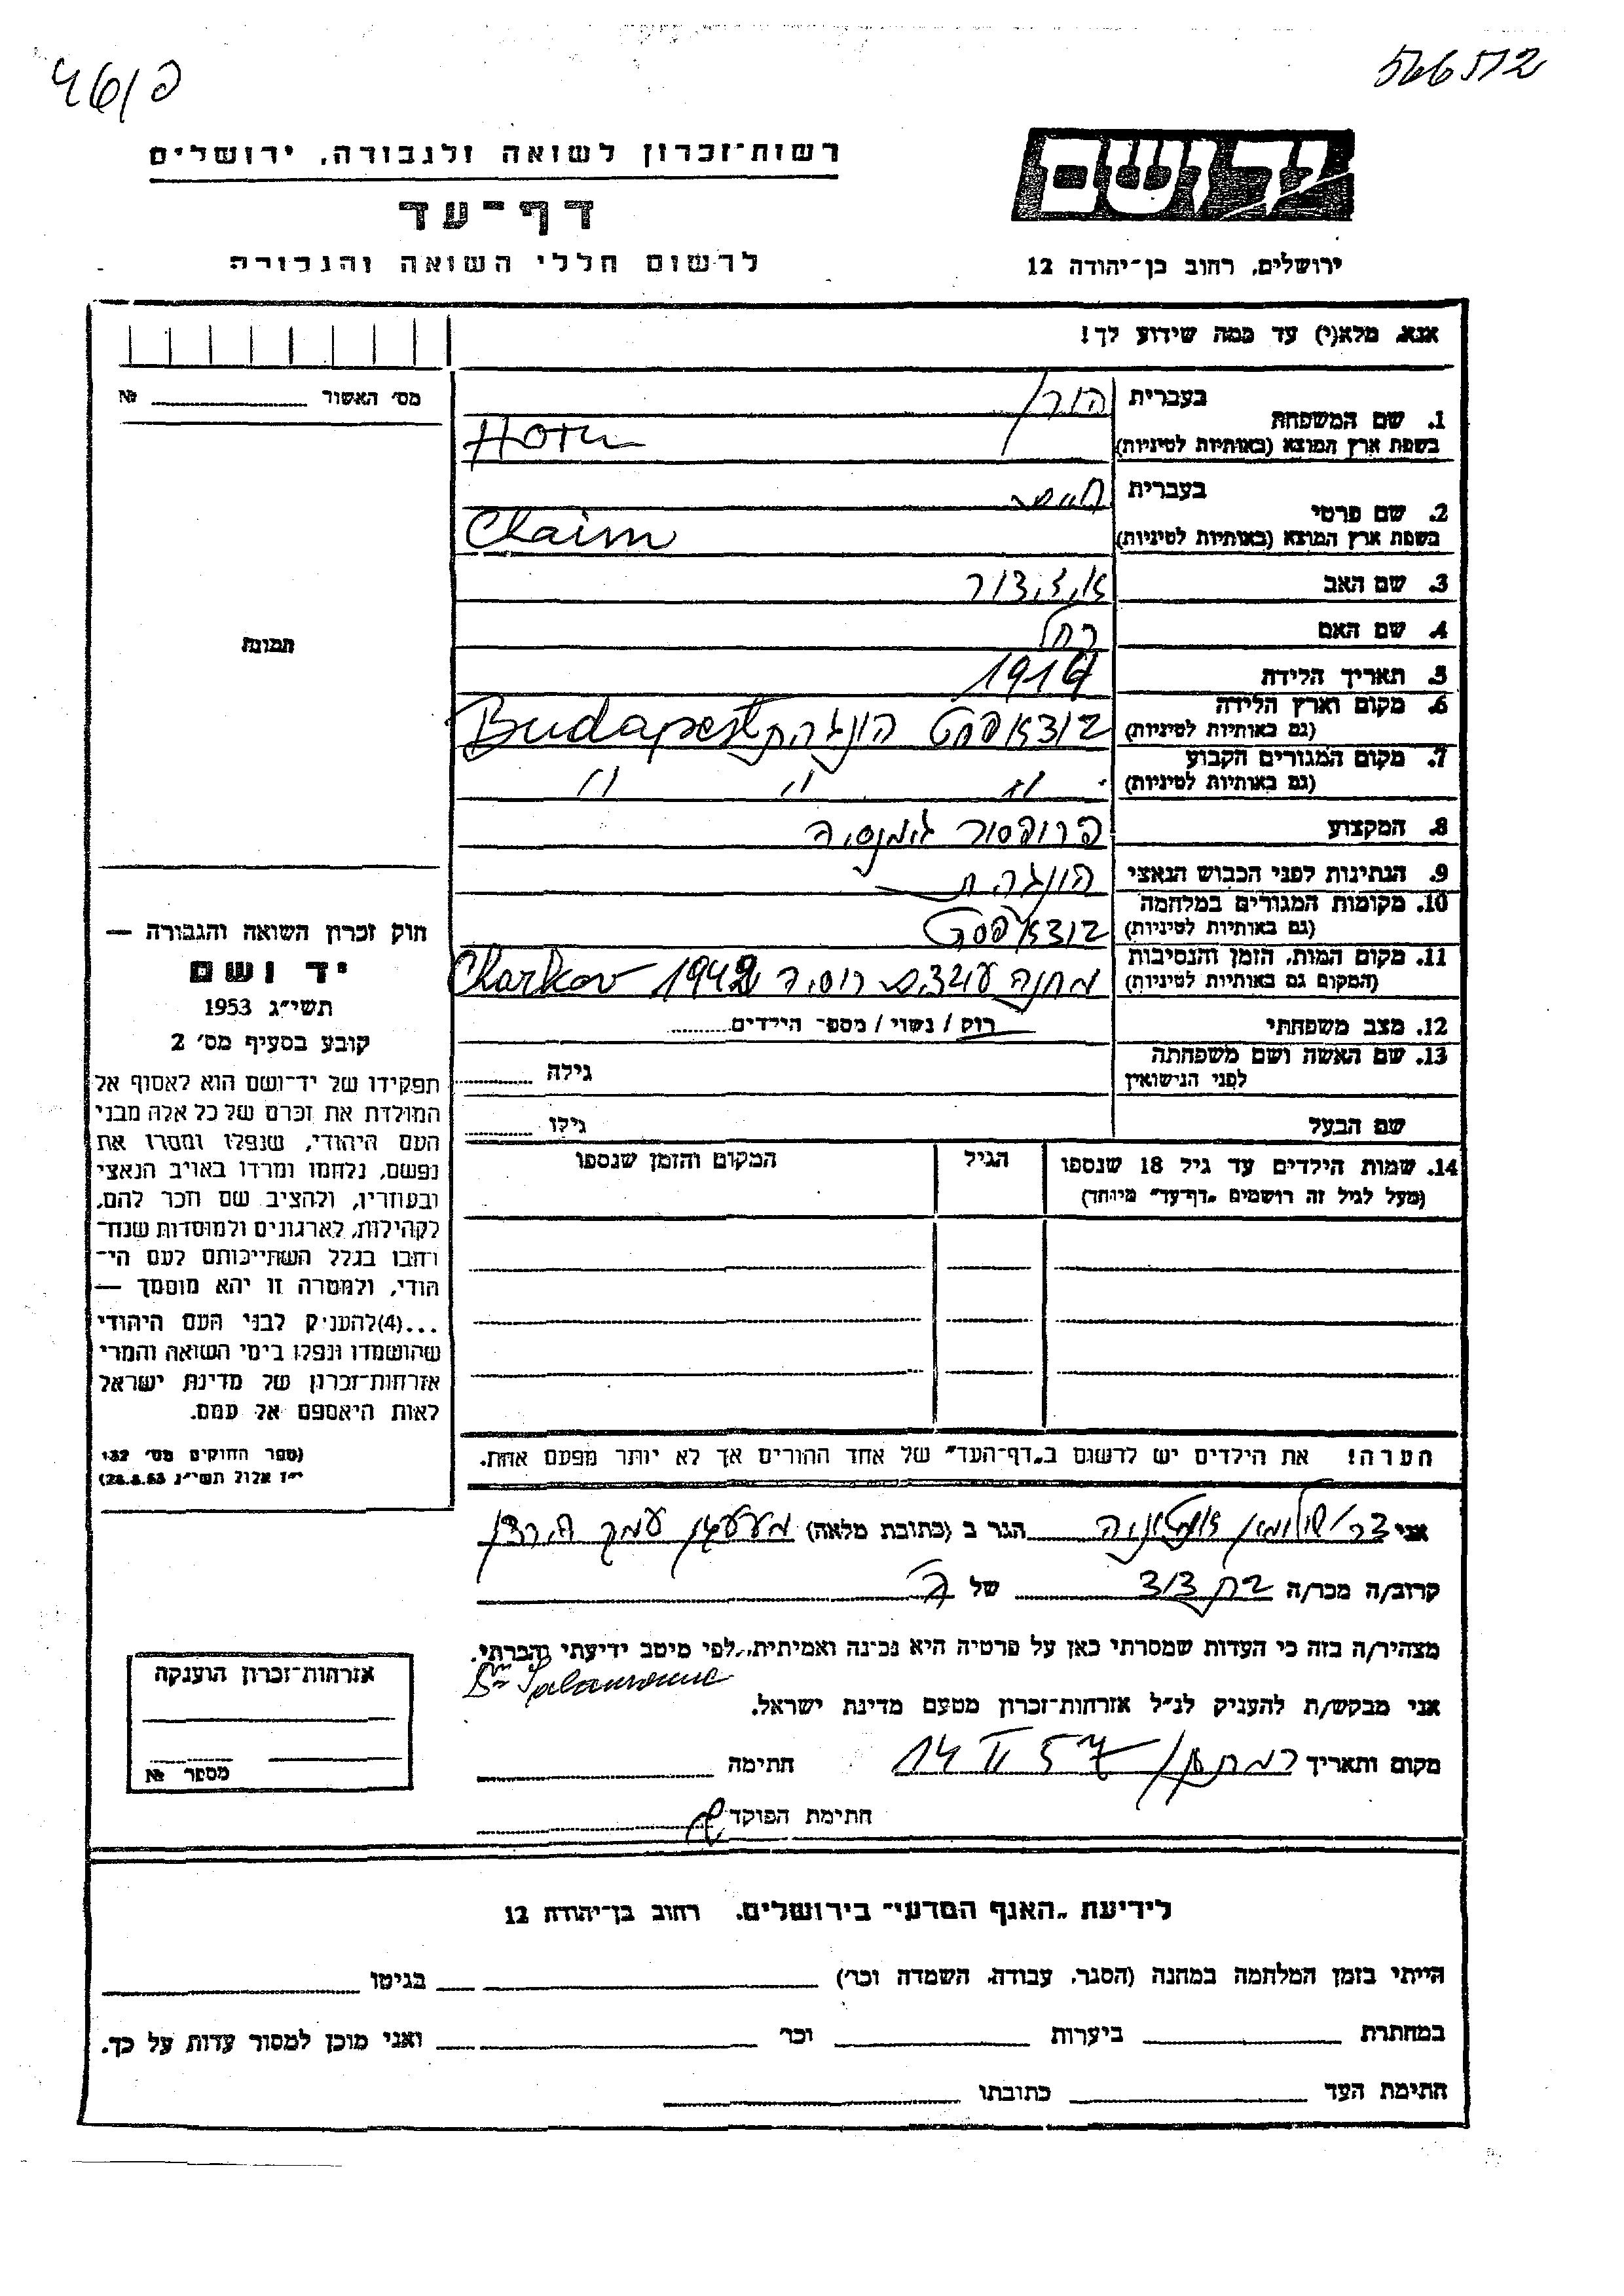 566512
רשות־זכרון לשואה ולגבורה, ירושלים
ידושם
דף־עד
לרשום חללי השואה והגבורה
ירושלים, רחוב בן־יהודה 12
אנא, מלא(י) עד כמה שידוע לך!
מס׳ האשור № 
1. שם המשפחה בעברית הורן
בשפת ארץ המוצא (באותיות לטיניות) Horn
2. שם פרטי בעברית חיים
בשפת ארץ המוצא (באותיות לטיניות) Chaim
3. שם האב איזידור
4. שם האם רחל
5. תאריך הלידה
6. מקום וארץ הלידה (גם באותיות לטיניות) בודאפסט הונגריה Budapest
7. מקום המגורים הקבוע (גם באותיות לטיניות) " " "
8. המקצוע פרופסור גימנסיה
9. הנתינות לפני הכבוש הנאצי הונגרית
10. מקומות המגורים במלחמה (גם באותיות לטיניות) בודאפסט
11. מקום המות, הזמן והנסיבות (המקום גם באותיות לטיניות) מחנה עובדים רוסיה 1942 Charkov
12. מצב משפחתי רוק / נשוי / מספר הילדים
13. שם האשה ושם משפחתה לפני הנישואין גילה
שם הבעל גילו
14. שמות הילדים עד גיל 18 שנספו (מעל לגיל זה רושמים "דף־עד" מיוחד) הגיל המקום והזמן שנספו
תמונה
חוק זכרון השואה והגבורה —
יד ושם
תשי״ג 1953
קובע בסעיף מס׳ 2
תפקידו של יד־ושם הוא לאסוף אל
המולדת את זכרם של כל אלה מבני
העם היהודי, שנפלו ומסרו את
נפשם, נלחמו ומרדו באויב הנאצי
ובעוזריו, ולהציב שם וזכר להם,
לקהילות, לארגונים ולמוסדות שנח־
רבו בגלל השתייכותם לעם הי־
הודי, ולמטרה זו יהא מוסמך —
...(4)להעניק לבני העם היהודי
שהושמדו ונפלו בימי השואה והמרי
אזרחות־זכרון של מדינת ישראל
לאות היאספם אל עמם.
(ספר החוקים מס׳ 132
י״ז אלול תשי״ג 28.8.53)
הערה! את הילדים יש לרשום ב"דף־העד" של אחד ההורים אך לא יותר מפעם אחת.
אני הגר ב (כתובת מלאה) עמק הירדן
קרוב/ה מכר/ה בת דוד של
מצהיר/ה בזה כי העדות שמסרתי כאן על פרטיה היא נכונה ואמיתית, לפי מיטב ידיעתי והכרתי.
אני מבקש/ת להעניק לנ״ל אזרחות־זכרון מטעם מדינת ישראל.
מקום ותאריך 14 II 57 חתימה
חתימת הפוקד
אזרחות־זכרון הוענקה
מספר №
לידיעת "האגף המדעי" בירושלים, רחוב בן־יהודה 12
הייתי בזמן המלחמה במחנה (הסגר, עבודה, השמדה וכו׳) בגיטו
במחתרת ביערות וכו׳ ואני מוכן למסור עדות על כך.
חתימת העד כתובתו